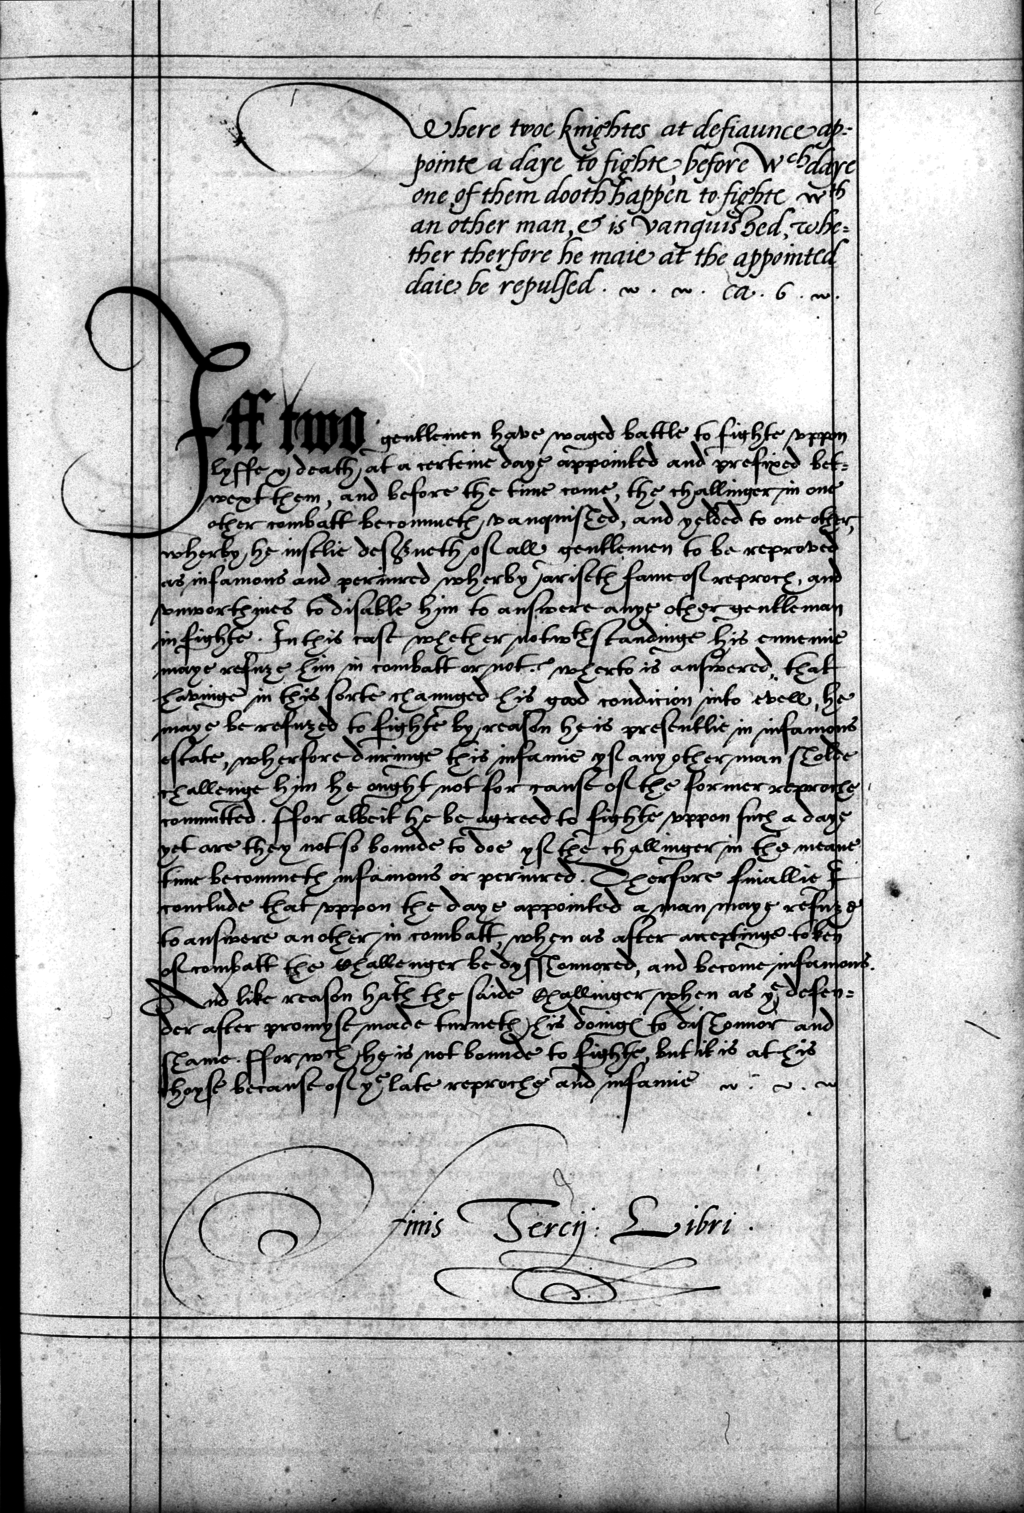 Where twoe knightes at defiaunce ap=
pointe a daye to fighte, before wch daye
one of them dooth happen to fighte wth
an other man, & is vanquished, whe=
ther therfore he maie at the appointed
daie be repulsed. ca. 6.
Iff two gentlemen have waged battle to fighte vppon
lyffe & death, at a certeine daye appointed and prefixed bet=
wext them, and before the time come, the challinger in one
other combatt becommeth vanquished, and yelded to one other,
wherby he iustlie deserueth of all gentlemen to be reproved
as infamous and periured wherby ariseth fame of reproch, and
vnworthines to disable him to answere anye other gentleman
in fighte. In this case whether notwthstandinge his ennemie
maye refuze him in combatt or not. wherto is answered, that
havinge in this sorte chaunged his good condicion into evell, he
maye be refuzed to fighte by reason he is presentlie in infamous
estate, wherfore duringe this infamie yf any other man sholde
challenge him he ought not for cause of the former reproche
committed. Ffor albeit he be agreed to fighte vppon such a daye
yet are they not so bounde to doe yf the challinger in the meane
time becommeth infamous or periured. Therfore finallie I
conclude that vppon the daye appointed a man maye refuze
to answere an other in combatt, when as after acceptinge token
of combatt the Challenger be dysshonnored, and become infamous.
And like reason hath the saide Challinger when as ye defen=
der after promyse made turneth his doinge to dishonnor and
shame. Ffor wch he is not bounde to fighte, but it is at his
choyse because of ye late reproche and infamie
Finis Tercij: Libri.